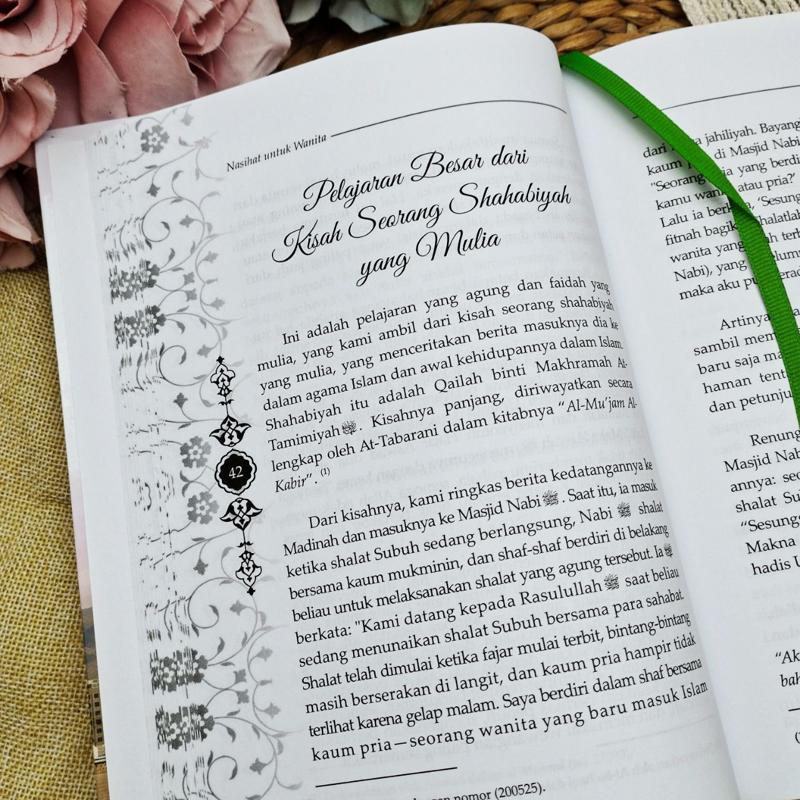 Nasihat untuk Wanita
Pelajaran Besar dari
Kisah Seorang Shahabiyah
yang Mulia
Ini adalah pelajaran yang agung dan faidah yang
mulia, yang kami ambil dari kisah seorang shahabiyah
yang mulia, yang menceritakan berita masuknya dia ke
dalam agama Islam dan awal kehidupannya dalam Islam.
Shahabiyah itu adalah Qailah binti Makhramah At-
Tamimiyah. Kisahnya panjang, diriwayatkan secara
lengkap oleh At-Tabarani dalam kitabnya “Al-Mu'jam Al-
Kabir”. (1)
42
Dari kisahnya, kami ringkas berita kedatangannya ke
Madinah dan masuknya ke Masjid Nabi ﷺ. Saat itu, ia masuk
ketika shalat Subuh sedang berlangsung, Nabi ﷺ shalat
bersama kaum mukminin, dan shaf-shaf berdiri di belakang
beliau untuk melaksanakan shalat yang agung tersebut. Ia
berkata: "Kami datang kepada Rasulullah ﷺ saat beliau
sedang menunaikan shalat Subuh bersama para sahabat.
Shalat telah dimulai ketika fajar mulai terbit, bintang-bintang
masih berserakan di langit, dan kaum pria hampir tidak
terlihat karena gelap malam. Saya berdiri dalam shaf bersama
kaum pria—seorang wanita yang baru masuk Islam
nomor (200525).
dari jahiliyah. Bayang
kaum di Masjid Nabi
"Seorang yang berdi
kamu atau pria?'
Lalu ia 'Sesung
fitnah
wanita yang
Nabi), yang
maka aku
Artinya
sambil
baru saja
haman
dan petunju
Renung
Masjid Nab
annya: sec
shalat Su
“Sesung
Makna
hadis U
“Ak
bah